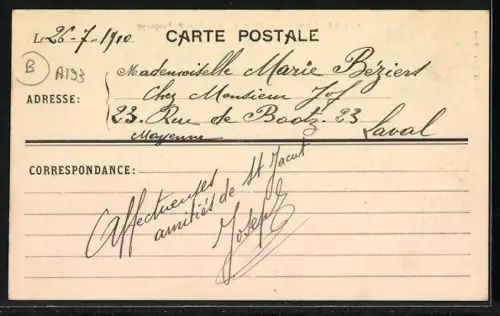 Le 26-7-1910
CARTE POSTALE
B
A193
ADRESSE:
Mademoiselle Marie Béziers
Chez Monsieur Jof
23. Rue de Bootz. 23
Mayenne
Laval
CORRESPONDANCE:
Affectueuses
amitiés de St Jacut
Joseph